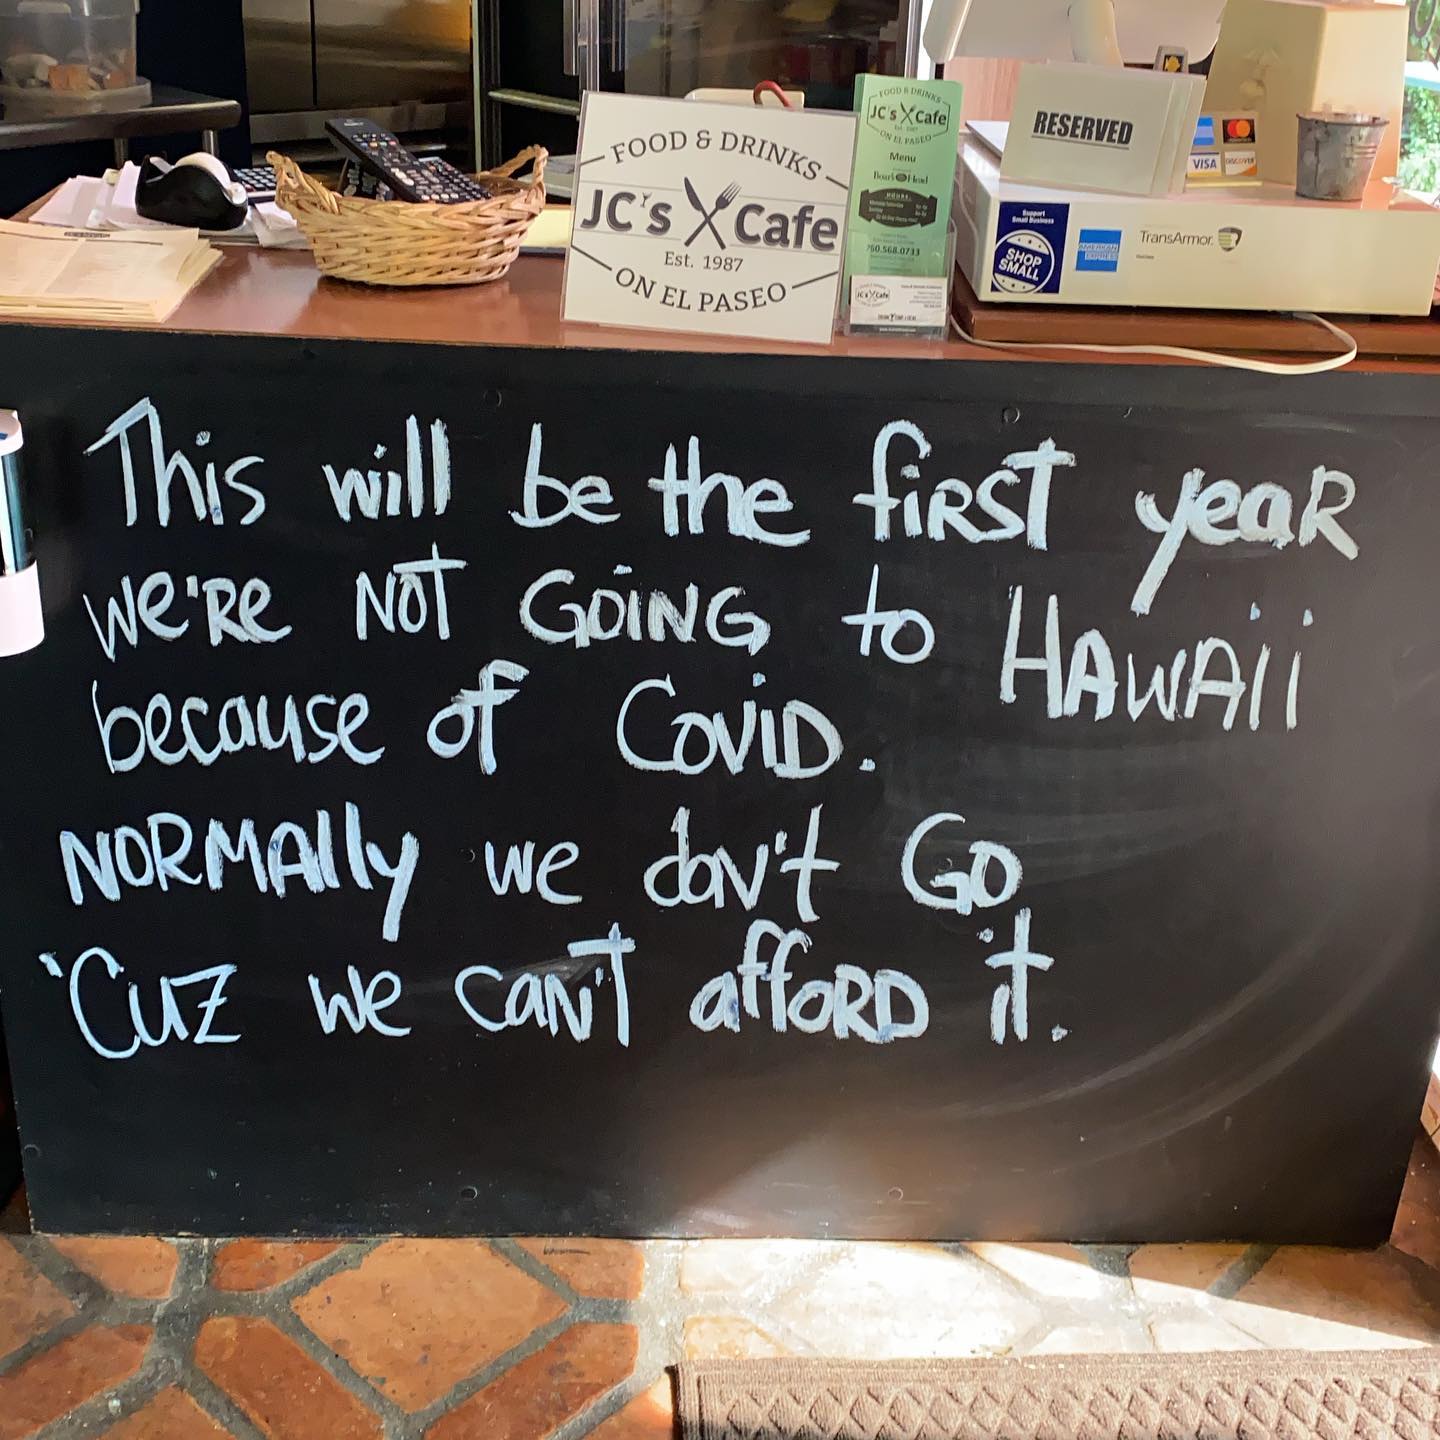 FOOD & DRINKS
JC's Cafe
Est. 1987
ON EL PASEO
FOOD & DRINKS
JC's Cafe
Est. 1987
ON EL PASEO
Menu
Boar's Head
HOURS
760.568.0733
JC's Cafe
RESERVED
VISA
DISCOVER
Support
Small Business
SHOP
SMALL
AMERICAN
EXPRESS
TransArmor
This will be the first year
we're not going to Hawaii
because of Covid.
Normally we don't go
'Cuz we can't afford it.